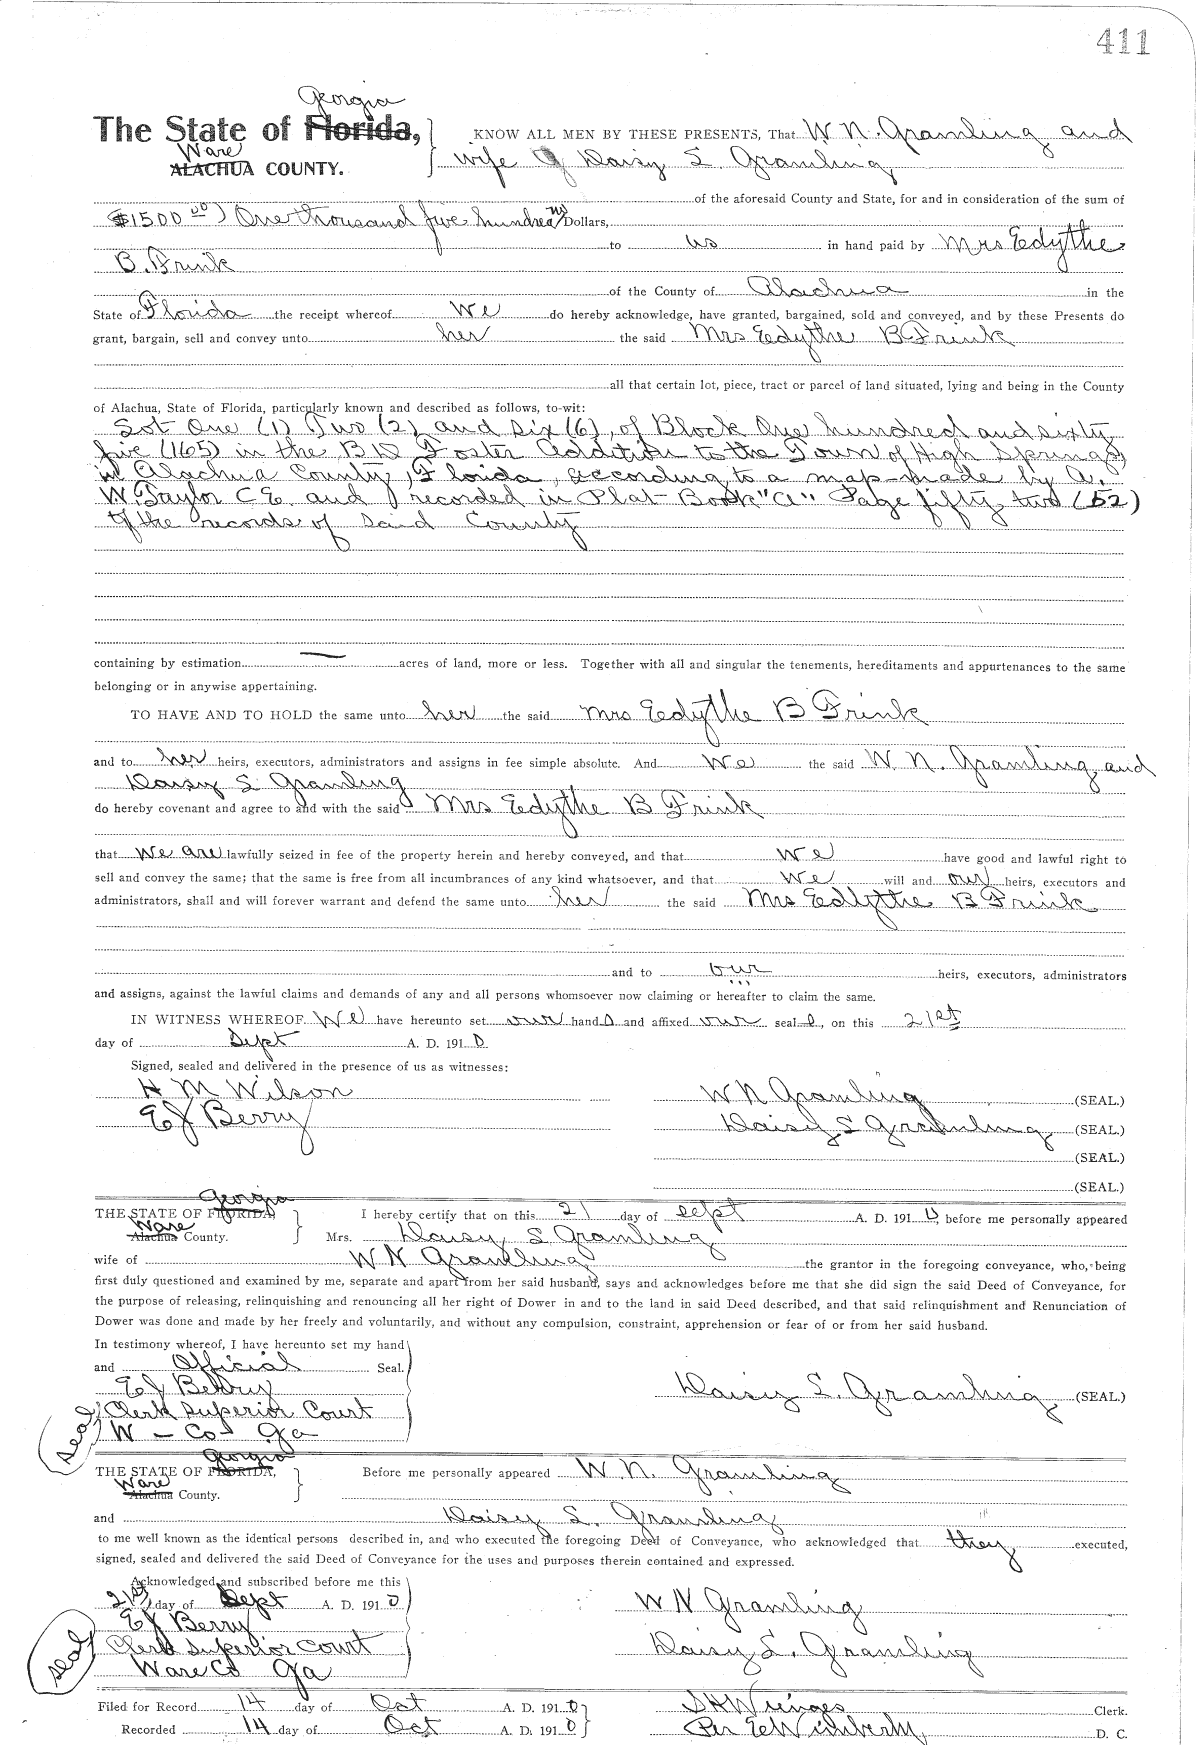 411
Georgia
The State of Florida, KNOW ALL MEN BY THESE PRESENTS, That W. N. Gramling and
Ware
ALACHUA COUNTY. wife Daisy S. Gramling
of the aforesaid County and State, for and in consideration of the sum of
($1500 00) One thousand five hundred no Dollars,
to us in hand paid by Mrs Edythe
B. Frink
of the County of Alachua in the
State of Florida the receipt whereof We do hereby acknowledge, have granted, bargained, sold and conveyed, and by these Presents do
grant, bargain, sell and convey unto her the said Mrs Edythe B Frink
all that certain lot, piece, tract or parcel of land situated, lying and being in the County
of Alachua, State of Florida, particularly known and described as follows, to-wit:
Lot One (1) Two (2) and Six (6), of Block One hundred and sixty
five (165) in the B D Foster Addition to the Town of High Springs,
in Alachua County, Florida, according to a map made by A.
W. Taylor C E and recorded in Plat Book "A" Page fifty two (52)
of the records of Said County
containing by estimation — acres of land, more or less. Together with all and singular the tenements, hereditaments and appurtenances to the same
belonging or in anywise appertaining.
TO HAVE AND TO HOLD the same unto her the said Mrs Edythe B Frink
and to her heirs, executors, administrators and assigns in fee simple absolute. And We the said W. N. Gramling and
Daisy S Gramling
do hereby covenant and agree to and with the said Mrs Edythe B Frink
that we are lawfully seized in fee of the property herein and hereby conveyed, and that we have good and lawful right to
sell and convey the same; that the same is free from all incumbrances of any kind whatsoever, and that we will and our heirs, executors and
administrators, shall and will forever warrant and defend the same unto her the said Mrs Edythe B Frink
and to our heirs, executors, administrators
and assigns, against the lawful claims and demands of any and all persons whomsoever now claiming or hereafter to claim the same.
IN WITNESS WHEREOF We have hereunto set our hands and affixed our seals, on this 21st
day of Sept A. D. 1910
Signed, sealed and delivered in the presence of us as witnesses:
H M Wilson W N Gramling (SEAL.)
E J Berry Daisy S Gramling (SEAL.)
(SEAL.)
(SEAL.)
Georgia
THE STATE OF FLORIDA, I hereby certify that on this 21 day of Sept A. D. 1910, before me personally appeared
Ware
Alachua County. Mrs. Daisy S Gramling
wife of W N Gramling the grantor in the foregoing conveyance, who, being
first duly questioned and examined by me, separate and apart from her said husband, says and acknowledges before me that she did sign the said Deed of Conveyance, for
the purpose of releasing, relinquishing and renouncing all her right of Dower in and to the land in said Deed described, and that said relinquishment and Renunciation of
Dower was done and made by her freely and voluntarily, and without any compulsion, constraint, apprehension or fear of or from her said husband.
In testimony whereof, I have hereunto set my hand
and Official Seal.
E J Berry Daisy S. Gramling (SEAL.)
Seal Clerk Superior Court
W - Co - Ga
Georgia
THE STATE OF FLORIDA, Before me personally appeared W N. Gramling
Ware
Alachua County.
and Daisy S. Gramling
to me well known as the identical persons described in, and who executed the foregoing Deed of Conveyance, who acknowledged that they executed,
signed, sealed and delivered the said Deed of Conveyance for the uses and purposes therein contained and expressed.
Acknowledged and subscribed before me this
21st day of Sept A. D. 1910 W N Gramling
E J Berry
Seal Clerk Superior Court Daisy S. Gramling
Ware Co Ga
Filed for Record 14 day of Oct A. D. 1910 S H Wienges Clerk.
Recorded 14 day of Oct A. D. 1910 Per E Wimberly D. C.